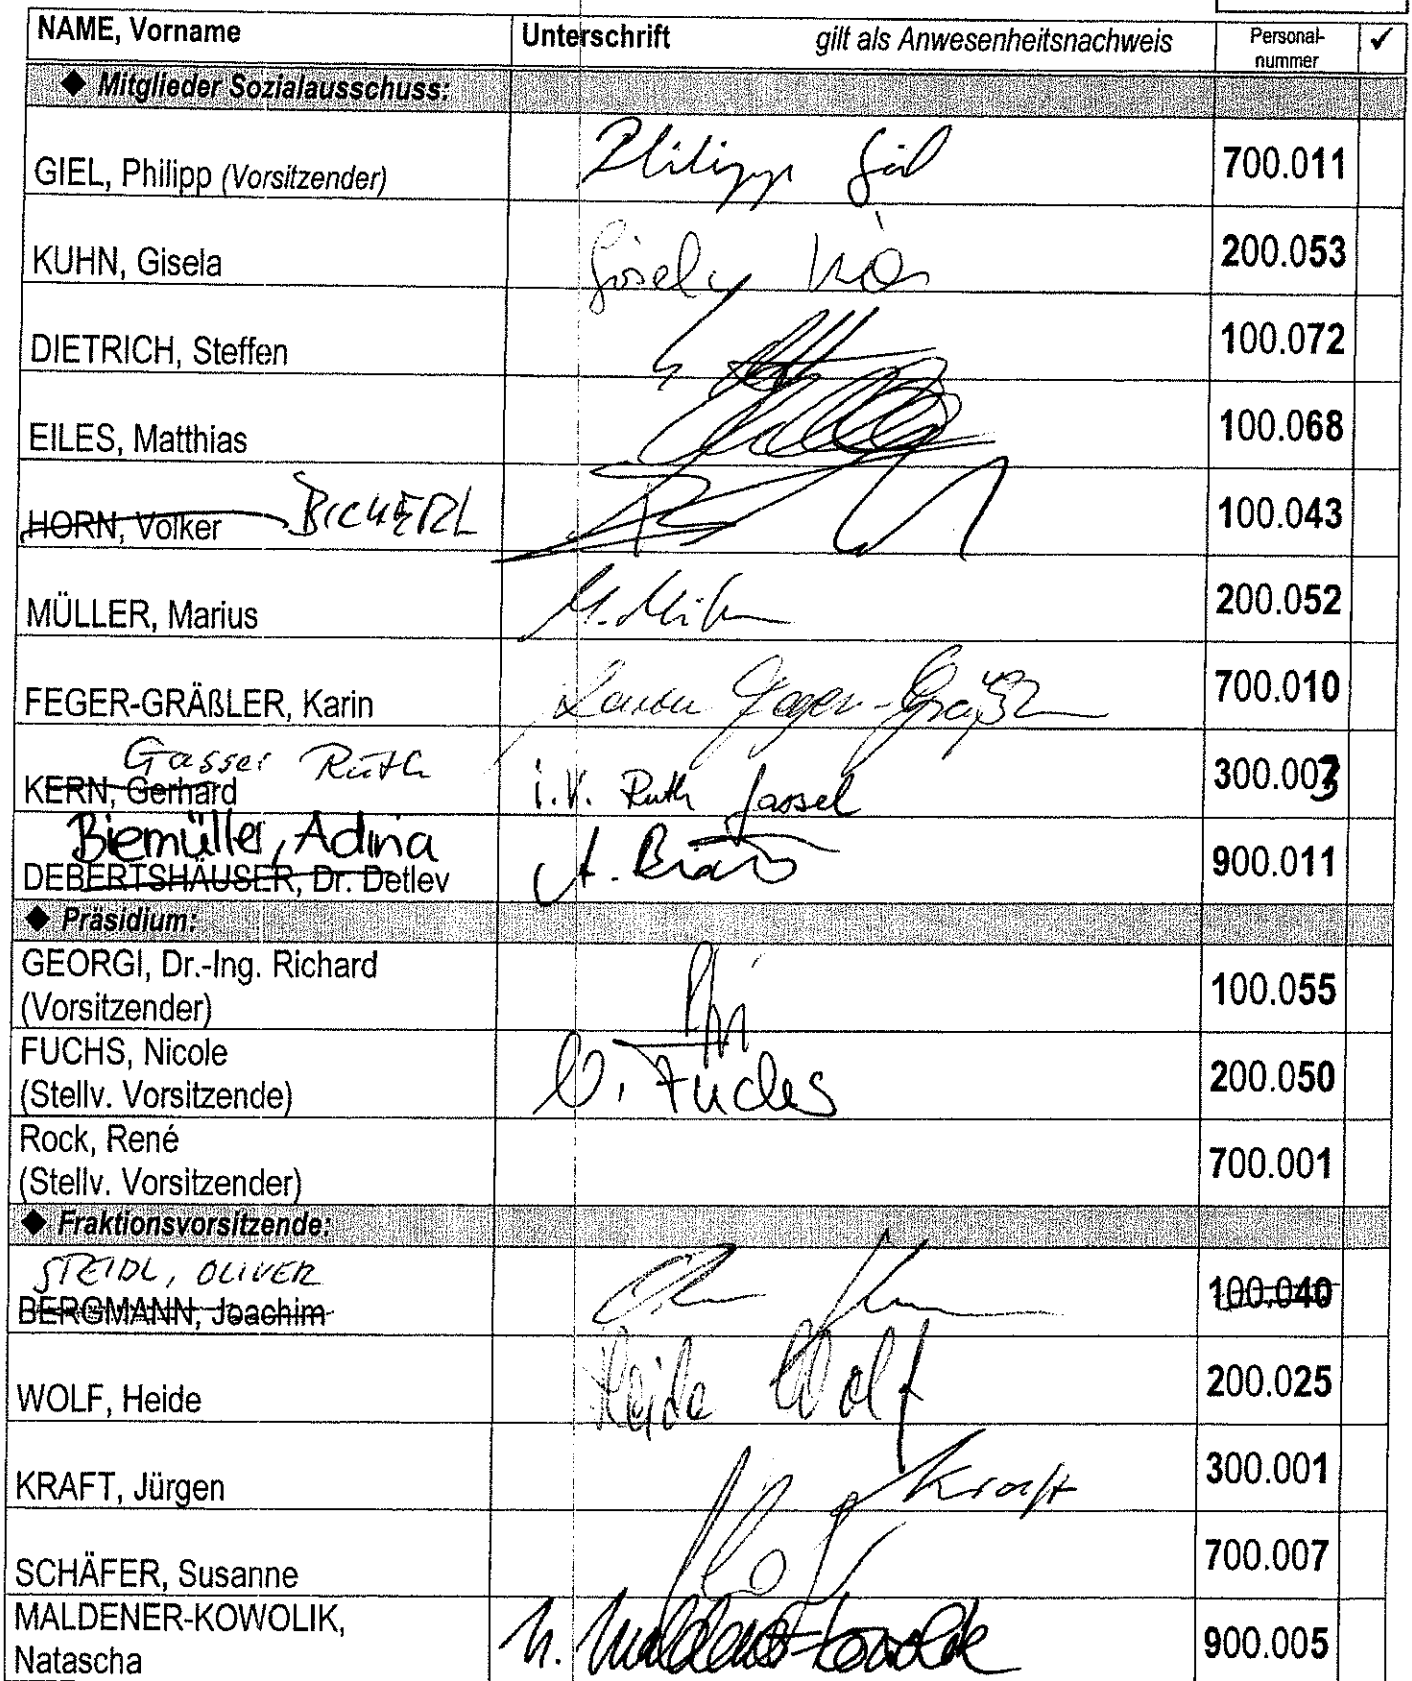 NAME, Vorname Unterschrift gilt als Anwesenheitsnachweis Personal-nummer ✓
◆ Mitglieder Sozialausschuss:
GIEL, Philipp (Vorsitzender) Philipp Giel 700.011
KUHN, Gisela Gisela 200.053
DIETRICH, Steffen 100.072
EILES, Matthias 100.068
HORN, Volker BICKERL 100.043
MÜLLER, Marius 200.052
FEGER-GRÄßLER, Karin Karin Feger-Gräßler 700.010
Gasser Ruth
KERN, Gerhard i.V. Ruth Gasser 300.003
Biemüller, Adina
DEBERTSHÄUSER, Dr. Detlev 900.011
◆ Präsidium:
GEORGI, Dr.-Ing. Richard
(Vorsitzender) 100.055
FUCHS, Nicole
(Stellv. Vorsitzende) N. Fuchs 200.050
Rock, René
(Stellv. Vorsitzender) 700.001
◆ Fraktionsvorsitzende:
STEIDL, OLIVER
BERGMANN, Joachim 100.040
WOLF, Heide Heide Wolf 200.025
KRAFT, Jürgen Kraft 300.001
SCHÄFER, Susanne 700.007
MALDENER-KOWOLIK,
Natascha N. Maldener-Kowolik 900.005